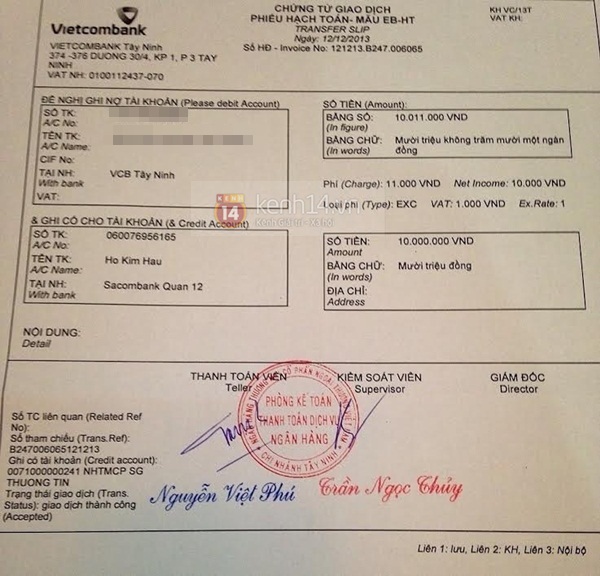 Vietcombank
VIETCOMBANK Tây Ninh
374 -376 DUONG 30/4, KP 1, P 3 TAY
NINH
VAT NH: 0100112437-070
CHỨNG TỪ GIAO DỊCH
PHIẾU HẠCH TOÁN- MẪU EB-HT
TRANSFER SLIP
Ngày: 12/12/2013
Số HĐ - Invoice No: 121213.B247.006065
KH VC/13T
VAT KH:
ĐỀ NGHỊ GHI NỢ TÀI KHOẢN (Please debit Account)
SỐ TK:
A/C No:
TÊN TK:
A/C Name:
CIF No:
TẠI NH: VCB Tây Ninh
With bank
VAT:
SỐ TIỀN (Amount):
BẰNG SỐ: 10.011.000 VND
(In figure)
BẰNG CHỮ: Mười triệu không trăm mười một ngàn
(In words) đồng
Phí (Charge): 11.000 VND Net Income: 10.000 VND
Loại phí (Type): EXC VAT: 1.000 VND Ex.Rate: 1
KENH
14
kenh14.vn
& GHI CÓ CHO TÀI KHOẢN (& Credit Account)
SỐ TK: 060076956165
A/C No:
TÊN TK: Ho Kim Hau
A/C Name:
TẠI NH: Sacombank Quan 12
With bank
SỐ TIỀN: 10.000.000 VND
Amount
BẰNG CHỮ: Mười triệu đồng
(In words)
ĐỊA CHỈ:
Address
NỘI DUNG:
Detail
THANH TOÁN VIÊN
Teller
KIỂM SOÁT VIÊN
Supervisor
GIÁM ĐỐC
Director
PHÒNG KẾ TOÁN
THANH TOÁN DỊCH VỤ
NGÂN HÀNG
CHI NHÁNH TÂY NINH
Số TC liên quan (Related Ref
No):
Số tham chiếu (Trans.Ref):
B247006065121213
Ghi có tài khoản (Credit account):
0071000000241 NHTMCP SG
THUONG TIN
Trạng thái giao dịch (Trans.
Status): giao dịch thành công
(Accepted)
Nguyễn Việt Phú
Trần Ngọc Thủy
Liên 1: lưu, Liên 2: KH, Liên 3: Nội bộ